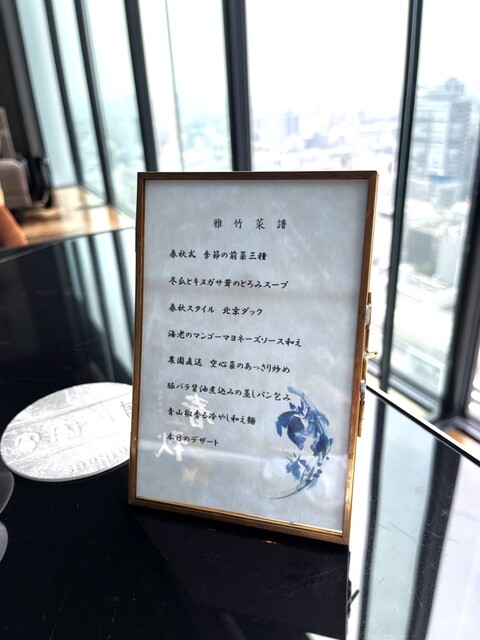 雅竹菜譜
春秋式 季節の前菜三種
冬瓜とキヌガサ茸のとろみスープ
春秋スタイル 北京ダック
海老のマンゴーマヨネーズソース和え
農園直送 空心菜のあっさり炒め
豚バラ醤油煮込みの蒸しパン包み
青山椒香る冷やし和え麺
本日のデザート
春秋